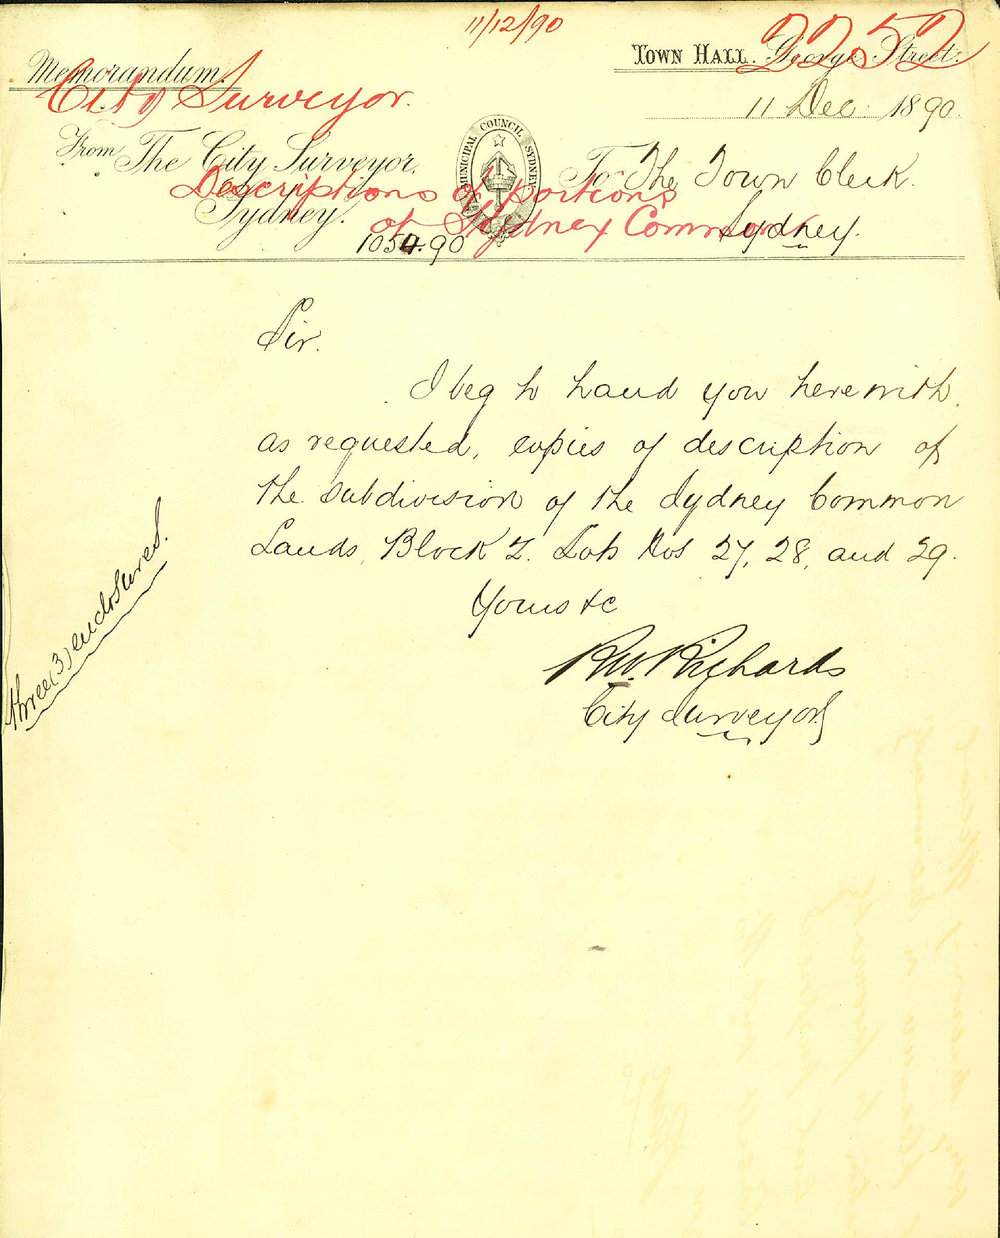 11/12/90
2252
Memorandum.
Town Hall. George Street.
City Surveyor.
11 Dec. 1890.
MUNICIPAL COUNCIL SYDNEY
From The City Surveyor.
To The Town Clerk.
Descriptions of portions
Sydney.
of Sydney Common
Sydney.
1054.90
Sir.
I beg to hand you herewith,
as requested, copies of description of
the subdivision of the Sydney Common
Lands, Block Z. Lots Nos 27, 28, and 29.
Yours &c
RW. Richards
City Surveyor
three (3) enclosures.